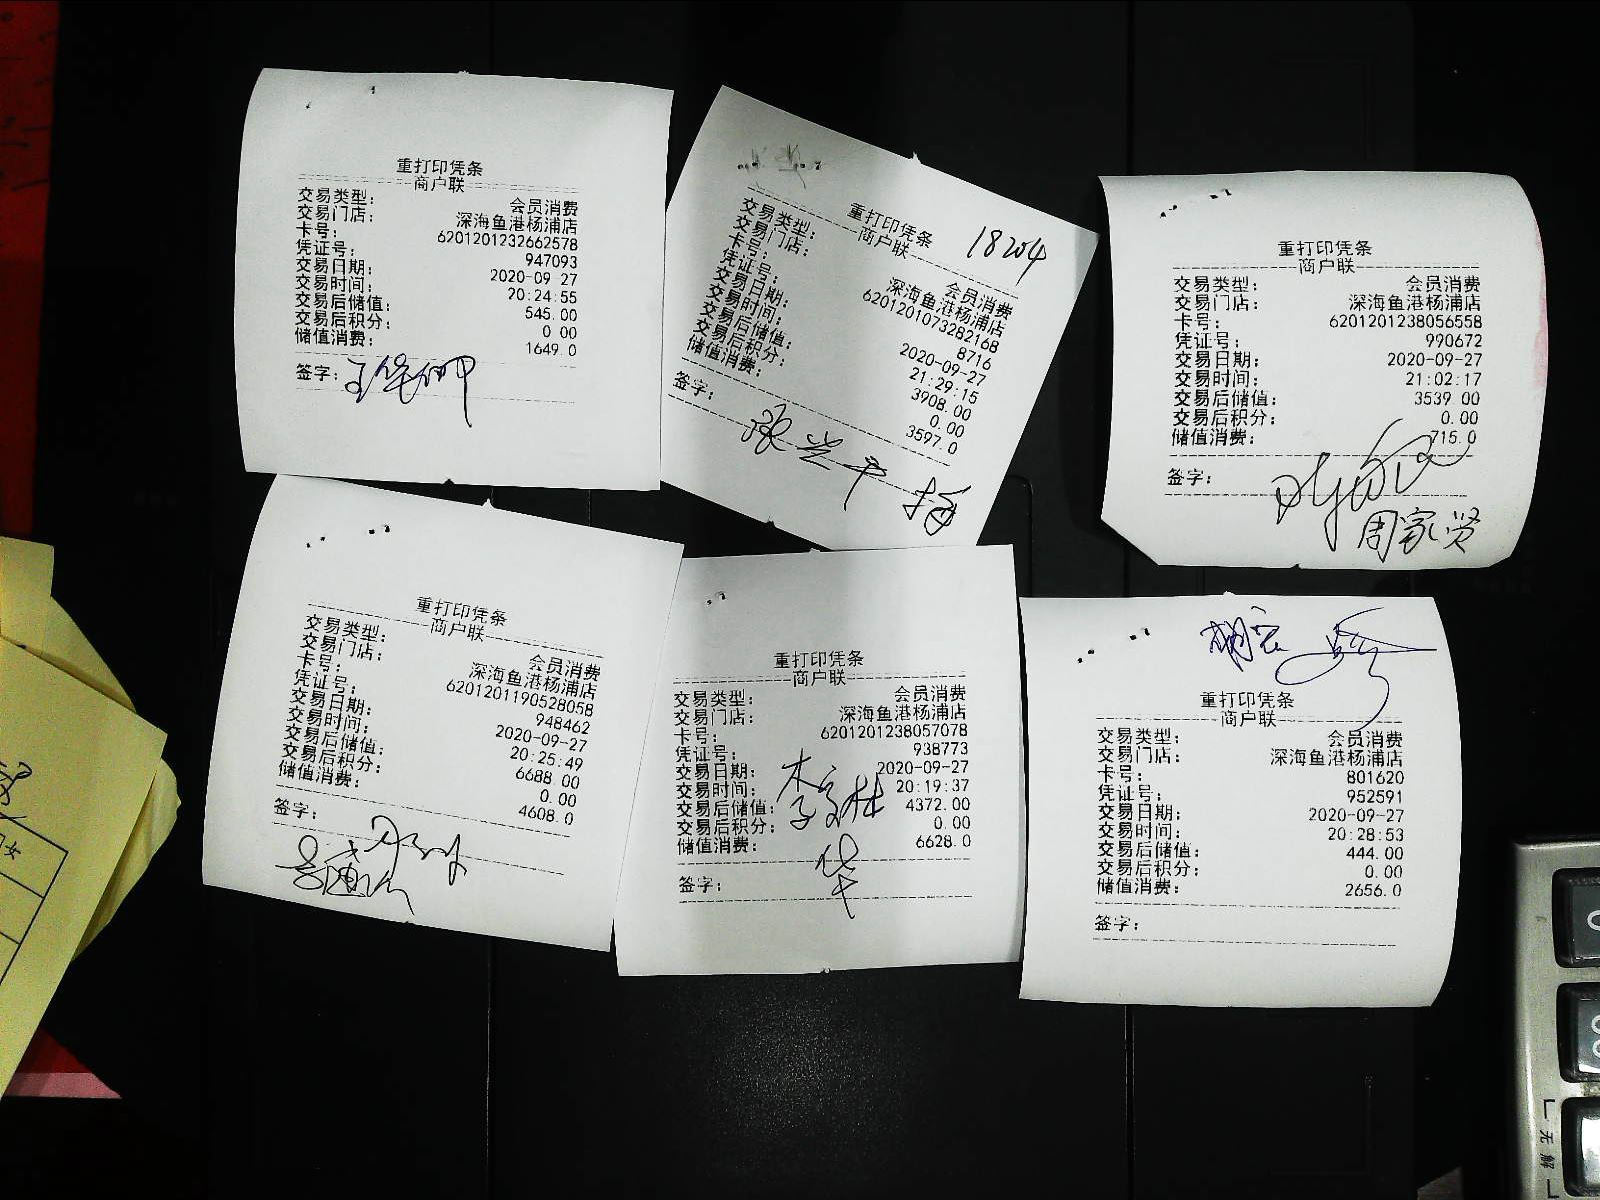 重打印凭条
商户联
交易类型： 会员消费
交易门店： 深海鱼港杨浦店
卡号： 6201201232662578
凭证号： 947093
交易日期： 2020-09-27
交易时间： 20:24:55
交易后储值： 545.00
交易后积分： 0.00
储值消费： 1649.0
签字：
18204
重打印凭条
商户联
交易类型： 会员消费
交易门店： 深海鱼港杨浦店
卡号： 6201201073282168
凭证号： 8716
交易日期： 2020-09-27
交易时间： 21:29:15
交易后储值： 3908.00
交易后积分： 0.00
储值消费： 3597.0
签字：
重打印凭条
商户联
交易类型： 会员消费
交易门店： 深海鱼港杨浦店
卡号： 6201201238056558
凭证号： 990672
交易日期： 2020-09-27
交易时间： 21:02:17
交易后储值： 3539.00
交易后积分： 0.00
储值消费： 715.0
签字：
周家贤
重打印凭条
商户联
交易类型： 会员消费
交易门店： 深海鱼港杨浦店
卡号： 6201201190528058
凭证号： 948462
交易日期： 2020-09-27
交易时间： 20:25:49
交易后储值： 6688.00
交易后积分： 0.00
储值消费： 4608.0
签字：
重打印凭条
商户联
交易类型： 会员消费
交易门店： 深海鱼港杨浦店
卡号： 6201201238057078
凭证号： 938773
交易日期： 2020-09-27
交易时间： 20:19:37
交易后储值： 4372.00
交易后积分： 0.00
储值消费： 6628.0
签字：
重打印凭条
商户联
交易类型： 会员消费
交易门店： 深海鱼港杨浦店
卡号： 801620
凭证号： 952591
交易日期： 2020-09-27
交易时间： 20:28:53
交易后储值： 444.00
交易后积分： 0.00
储值消费： 2656.0
签字：
女
无 解